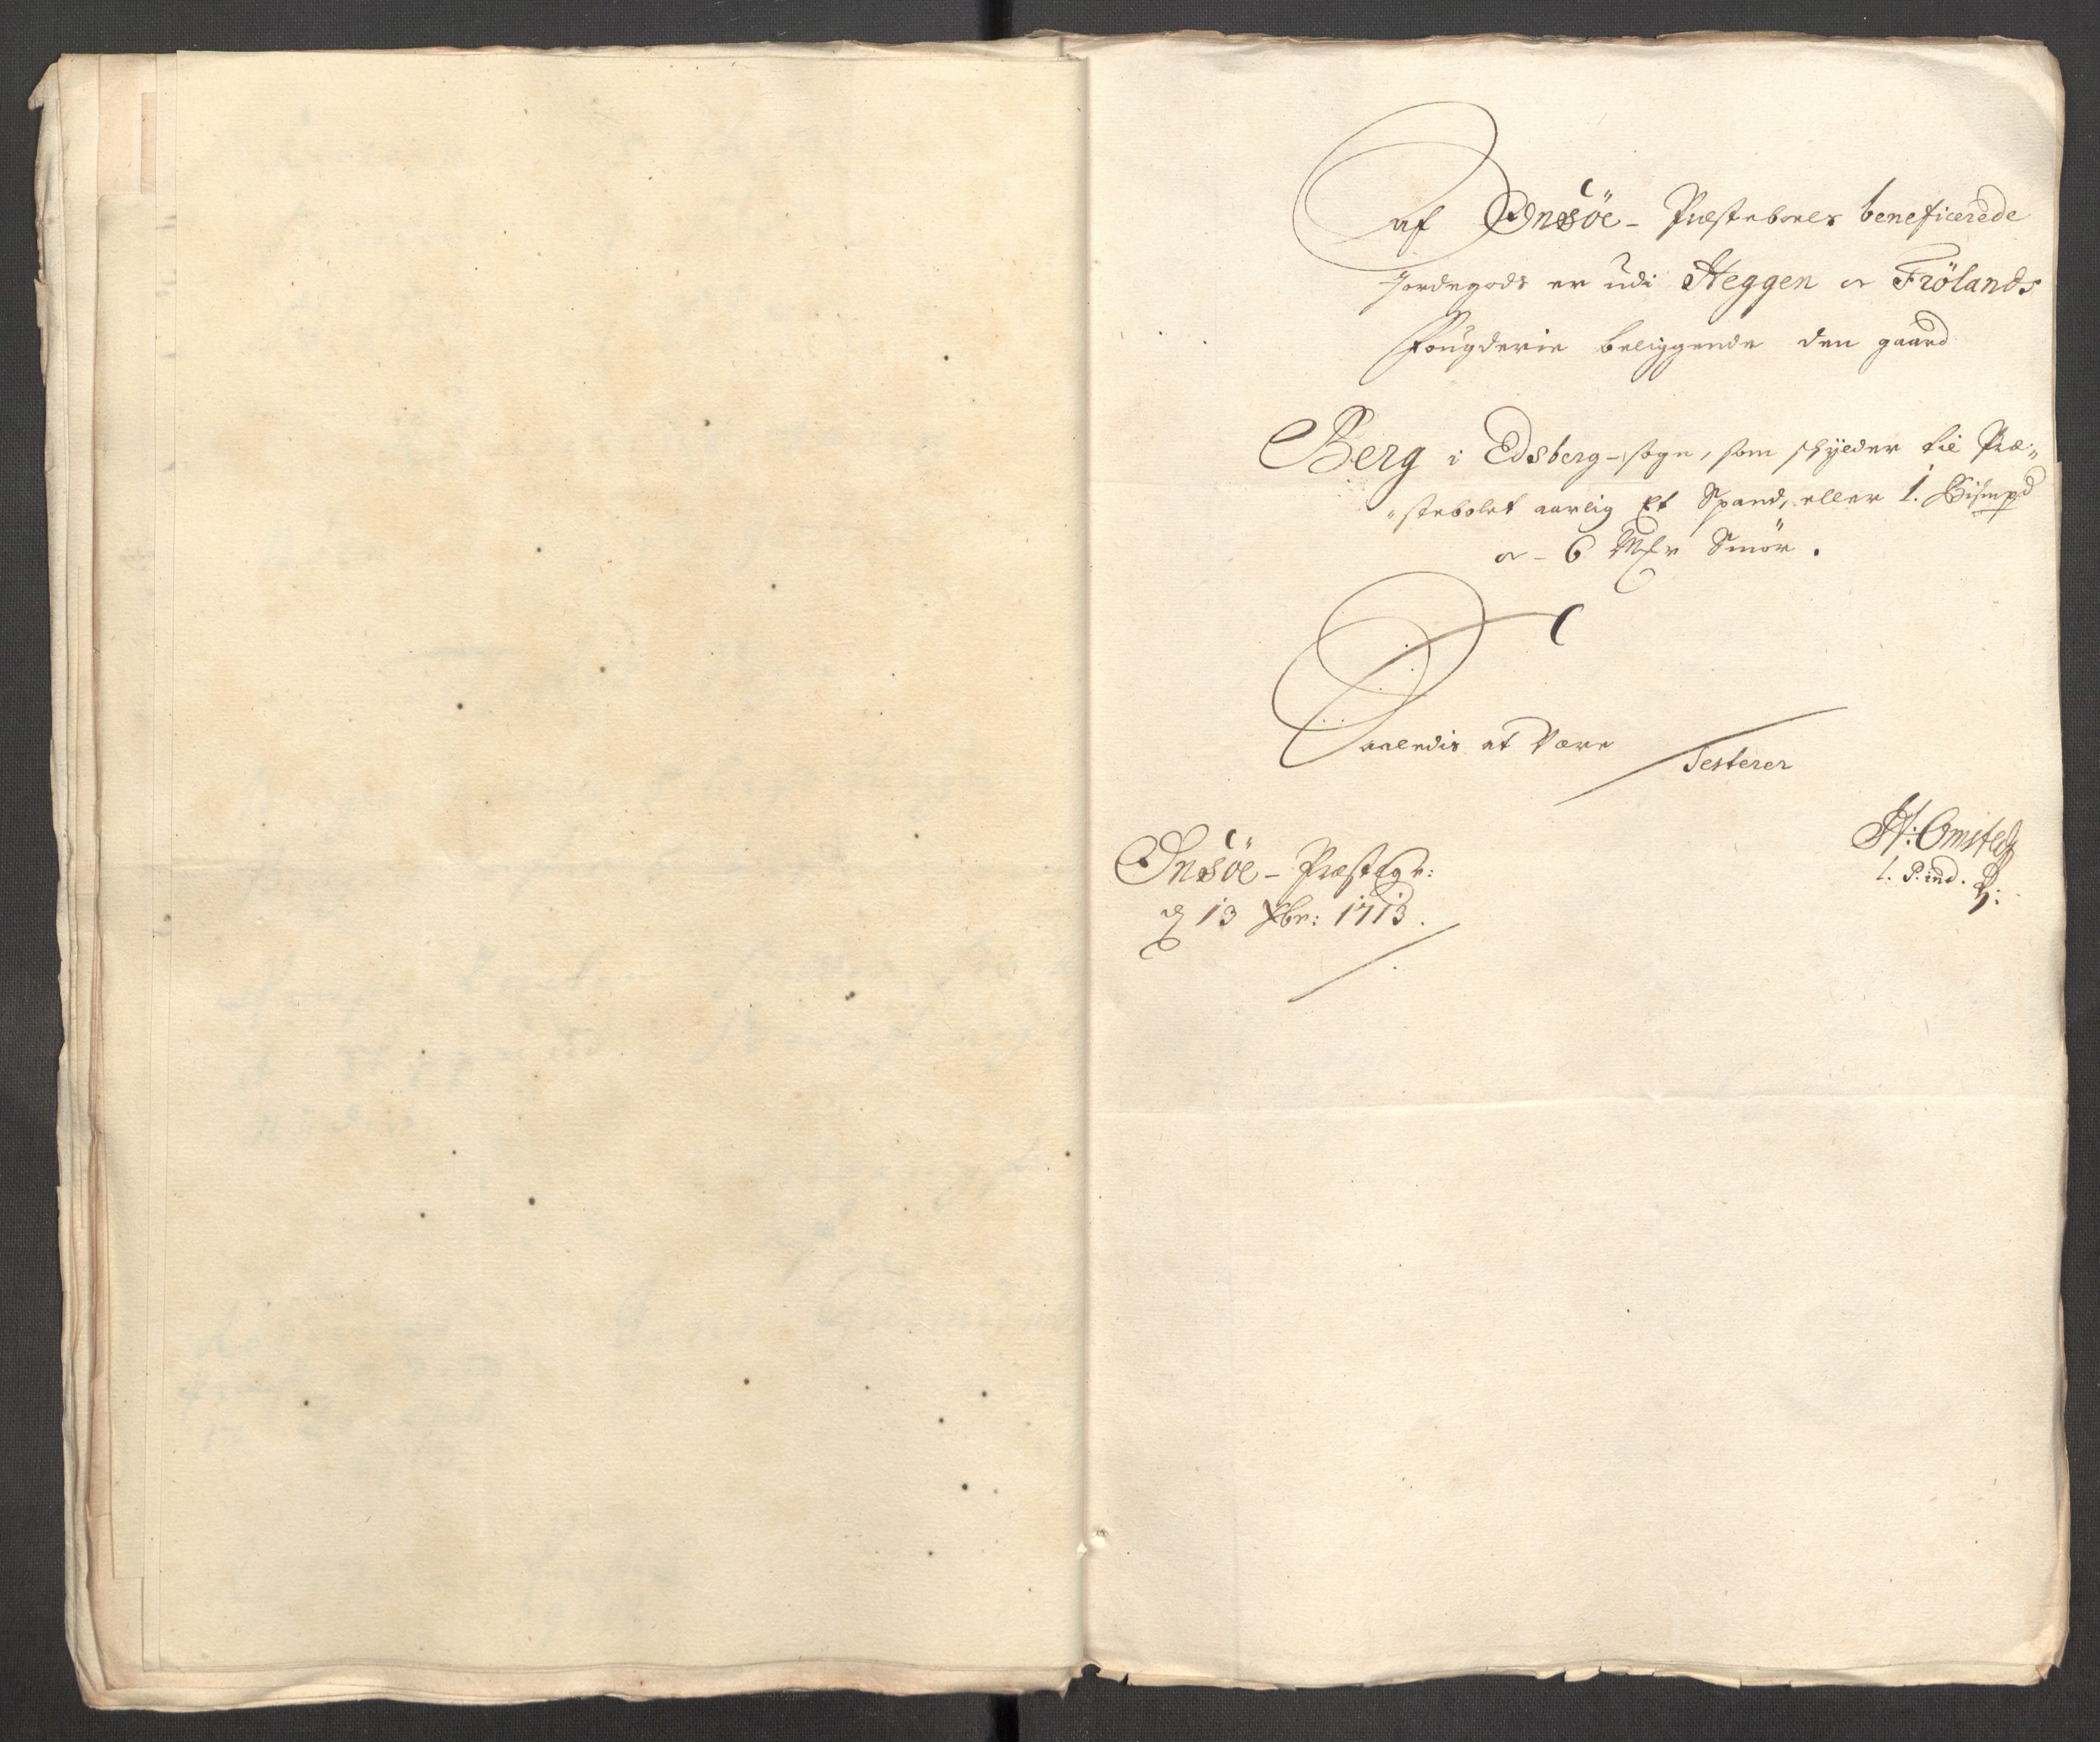 af Onsöe - Præsteboles beneficerede
Jordegods er udi Heggen o Frölands
Fougderie beliggende den gaard
Berg i Edsberg - sogn, som schylder til Præ„
„stebolet aarlig Et Spand, eller 1. Bismpd
o - 6 Mkr Smör.
Saaledis at være
Testerer
Onsöe - Præstegr:
d 13 Xbr: 1713.
H: Omsted